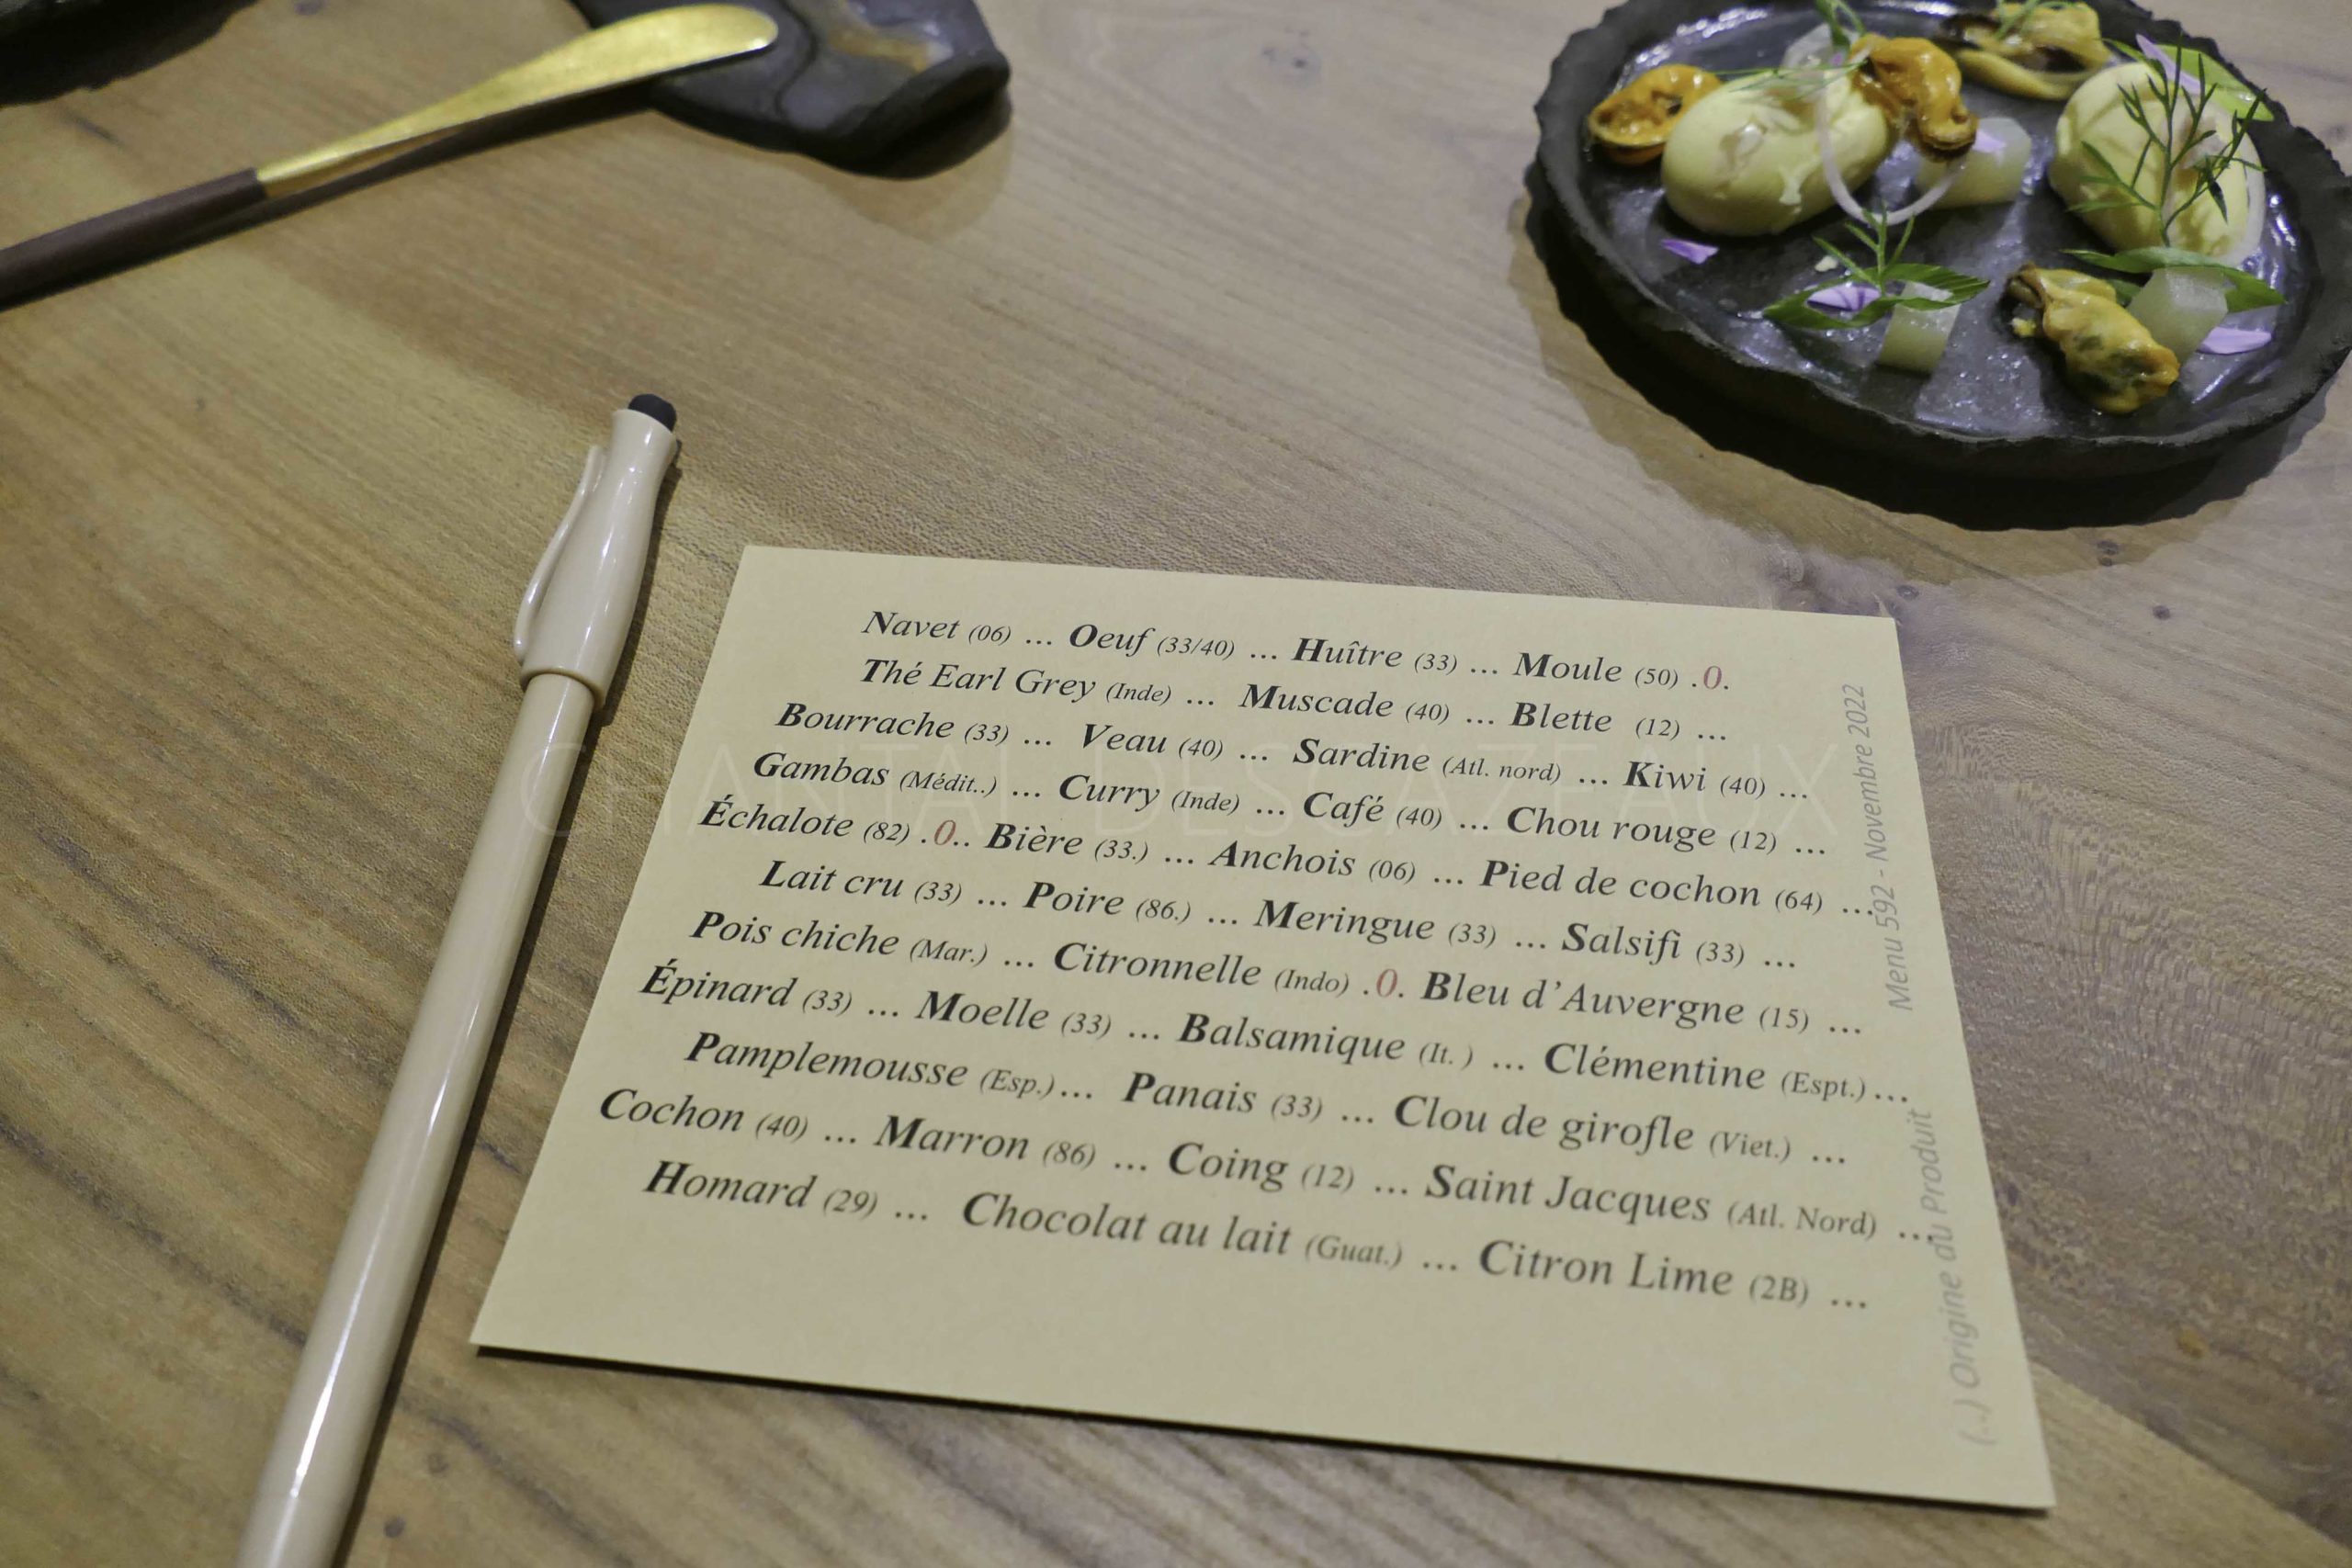 Navet (06) ... Oeuf (33/40) ... Huître (33) ... Moule (50) .0.
Thé Earl Grey (Inde) ... Muscade (40) ... Blette (12) ...
Bourrache (33) ... Veau (40) ... Sardine (Atl. nord) ... Kiwi (40) ...
Gambas (Médit..) ... Curry (Inde) ... Café (40) ... Chou rouge (12) ...
Échalote (82) .0.. Bière (33.) ... Anchois (06) ... Pied de cochon (64) ...
Lait cru (33) ... Poire (86.) ... Meringue (33) ... Salsifi (33) ...
Pois chiche (Mar.) ... Citronnelle (Indo) .0. Bleu d'Auvergne (15) ...
Épinard (33) ... Moelle (33) ... Balsamique (It. ) ... Clémentine (Espt.) ...
Pamplemousse (Esp.) ... Panais (33) ... Clou de girofle (Viet.) ...
Cochon (40) ... Marron (86) ... Coing (12) ... Saint Jacques (Atl. Nord) ...
Homard (29) ... Chocolat au lait (Guat.) ... Citron Lime (2B) ...
(..) Origine du Produit
Menu 592 - Novembre 2022